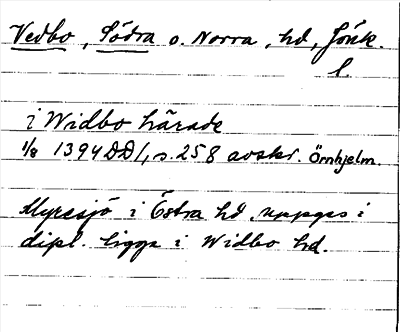 Vedbo, Södra o. Norra, hd, Jönk.
l.
i Widbo härade
1/8 1394 DD/, s. 258 avskr. Örnhjelm.
Myresjö i Östra hd. uppges i
dipl. ligga i Widbo hd.